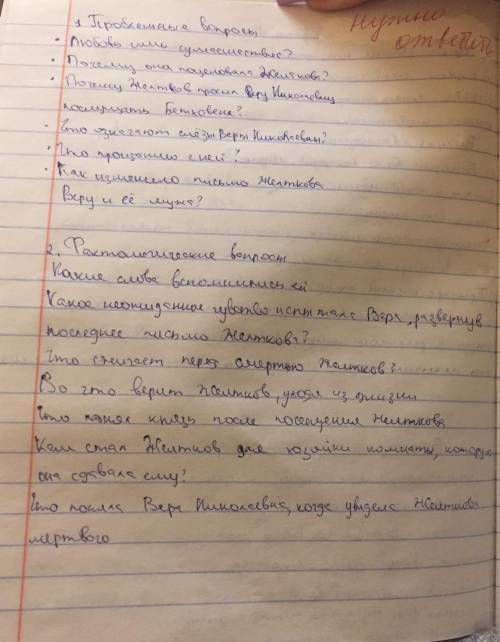 1. Проблемные вопросы
нужно
ответить
• Любовь или сумасшествие?
• Почему она поцеловала Желткова?
• Почему Желтков просил Веру Николаевну
послушать Бетховена?
• Что означают слёзы Веры Николаевны?
• Что произошло с ней?
• Как изменило письмо Желткова
Веру и её мужа?
2. Фактологические вопросы
Какие слова вспомнились ей
Какое неожиданное чувство испытала Вера, развернув
последнее письмо Желткова?
Что сжигает перед смертью Желтков?
Во что верит Желтков, уходя из жизни
Что понял князь после посещения Желткова
Кем стал Желтков для хозяйки комнаты, которую
она сдавала ему?
Что поняла Вера Николаевна, когда увидела Желткова
мертвого